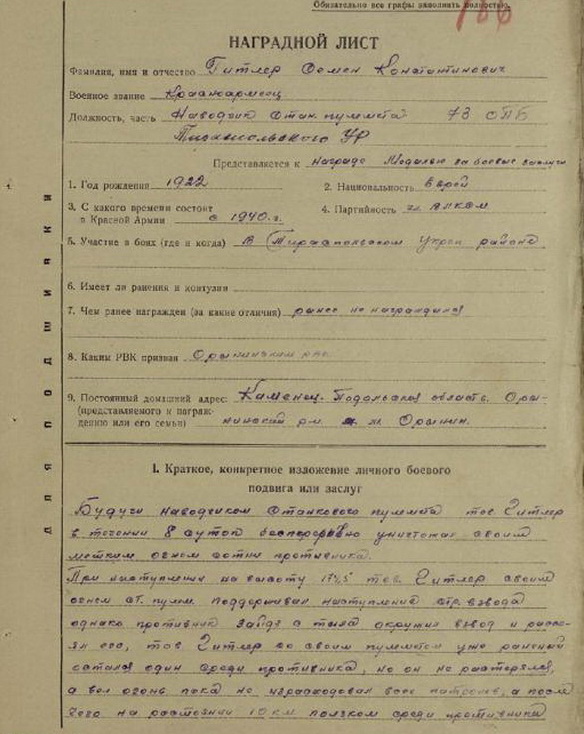 Обязательно все графы заполнить полностью.
НАГРАДНОЙ ЛИСТ
Фамилия, имя и отчество Гитлер Семен Константинович
Военное звание Красноармеец
Должность, часть Наводчик Стан. пулемета 73 ОПБ
Тираспольского УР
Представляется к награде Медалью за боевые заслуги
1. Год рождения 1922
2. Национальность Еврей
3. С какого времени состоит
в Красной Армии с 1940 г.
4. Партийность чл ВЛКСМ
5. Участие в боях (где и когда) В Тираспольском Укреп районе
6. Имеет ли ранения и контузии
7. Чем ранее награжден (за какие отличия) ранее не награждался
8. Каким РВК призван Орынинским рвк
9. Постоянный домашний адрес: Каменец-Подольская область. Оры-
(представляемого и награж-
дению или его семьи) нинский р-н. м. Орынин.
для подшивки
I. Краткое, конкретное изложение личного боевого
подвига или заслуг
Будучи наводчиком Станкового пулемета тов Гитлер
в течении 8 суток беспрерывно уничтожал своим
метким огнем сотни противника.
При наступлении на высоту 174,5 тов. Гитлер своим
огнем ст. пулем. поддерживал наступление стр. взвода
однако противник зайдя с тыла окружил взвод и рассе-
ял его, тов Гитлер со своим пулеметом уже раненый
остался один среди противника, но он не растерялся,
а вел огонь пока не израсходовал всех патронов, а после
чего на расстоянии 10 км ползком среди противника